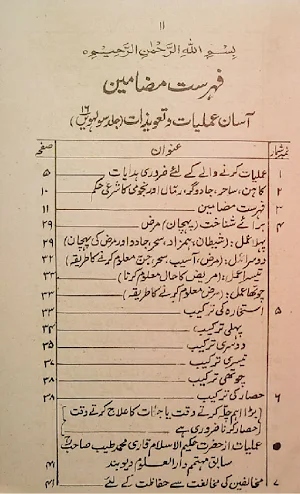 ۱۱
بسم اللہ الرحمٰن الرحیم
فہرست مضامین
آسان عملیات و تعویذات (جلد سولہویں ۱۶)
نمبر شمار عنوان صفحہ
۱ عملیات کرنے والے کے لئے ضروری ہدایات ۵
۲ کاہن، ساحر، جادوگر، رمال اور نجومی کا شرعی حکم ۱۰
۳ فہرست مضامین ۱۱
۴ برائے شناخت (پہچان) مرض ۲۹
پہلا عمل: (شیطان، ہمزاد، سحر، جادو اور مرض کی پہچان) ۲۹
دوسرا عمل: (مرض، آسیب، سحر، جن معلوم کرنے کا طریقہ) ۳۲
تیسرا عمل: (مریض کا حال معلوم کرنا) ۳۳
چوتھا عمل: (مرض معلوم کرنے کا طریقہ) ۳۳
۵ استخارہ کی ترکیب ۳۳
پہلی ترکیب ۳۴
دوسری ترکیب ۳۵
تیسری ترکیب
چوتھی ترکیب ۳۸
۶ حصار کی ترکیب ۳۸
(بڑا اہم چلہ کرتے وقت یا جنات کا علاج کرتے وقت
حصار کرنا ضروری ہے)
عملیات از حضرت حکیم الاسلام قاری محمد طیب صاحب
سابق مہتمم دارالعلوم دیوبند ۴۱
۷ مخالفین کی مخالفت سے حفاظت کے لئے ۴۱